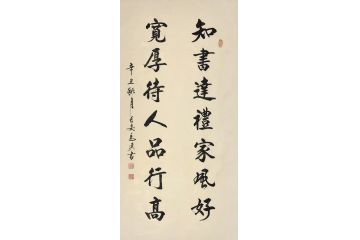 知書達禮家風好
寬厚待人品行高
辛丑